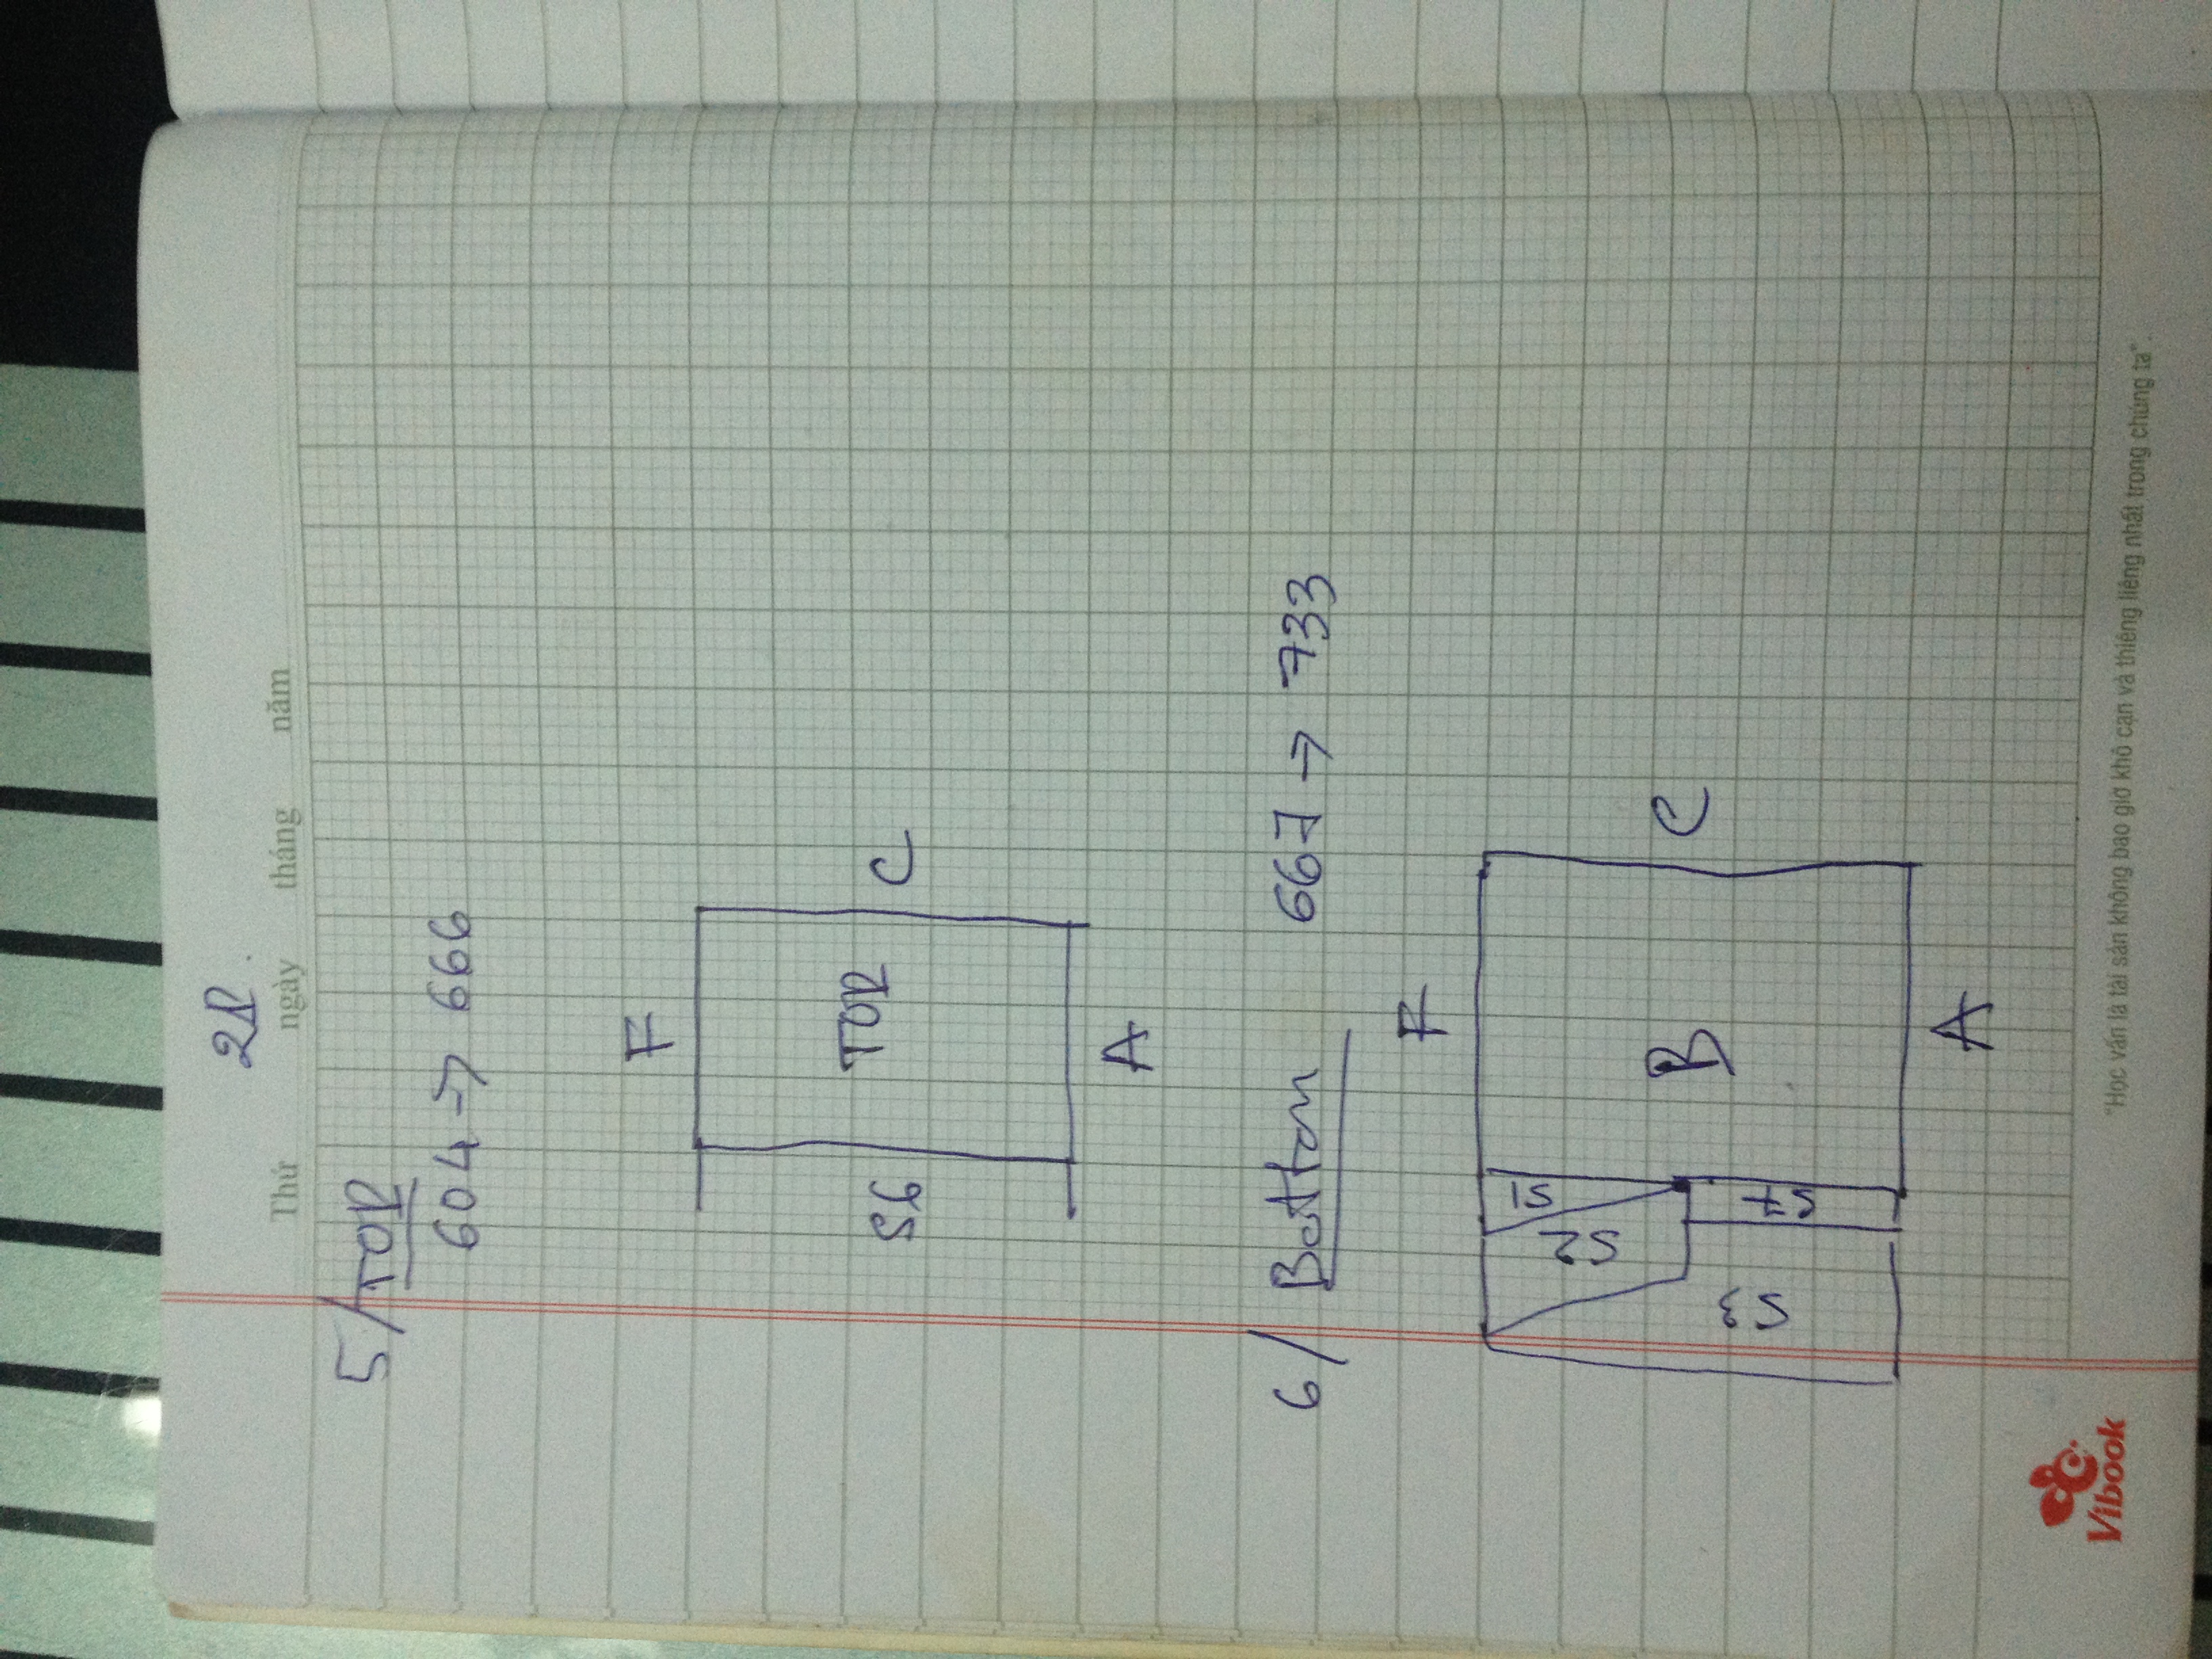 21.
Thứ ngày tháng năm
5/ TOP
604 → 666
F
TOP
S6
C
A
6/ Bottom 667 → 733
F
S1
S2
B
C
S3
S7
A
Vibook
"Học vấn là tài sản không bao giờ khô cạn và thiêng liêng nhất trong chúng ta".